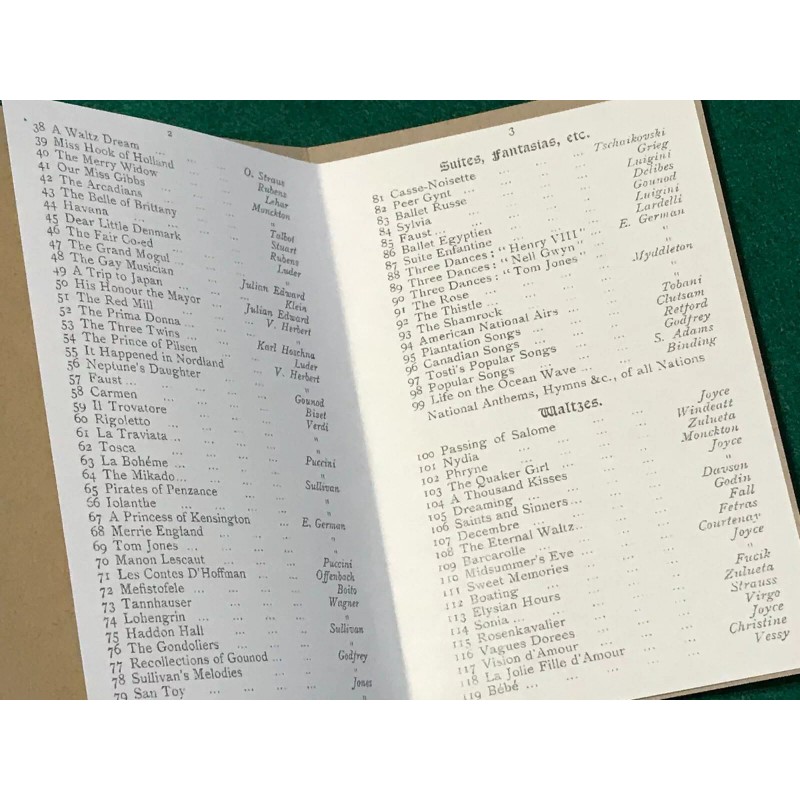 2
38 A Waltz Dream ... ... O. Straus
39 Miss Hook of Holland ... Rubens
40 The Merry Widow ... Lehar
41 Our Miss Gibbs ... Monckton
42 The Arcadians ... "
43 The Belle of Brittany ... Talbot
44 Havana ... ... Stuart
45 Dear Little Denmark ... Rubens
46 The Fair Co-ed ... Luder
47 The Grand Mogul ... "
48 The Gay Musician ... Julian Edward
49 A Trip to Japan ... Klein
50 His Honour the Mayor ... Julian Edward
51 The Red Mill ... V. Herbert
52 The Prima Donna ... "
53 The Three Twins ... Karl Hoschna
54 The Prince of Pilsen ... Luder
55 It Happened in Nordland ... V. Herbert
56 Neptune's Daughter ...
57 Faust ... ... Gounod
58 Carmen ... ... Bizet
59 Il Trovatore ... Verdi
60 Rigoletto ... "
61 La Traviata ... "
62 Tosca ... ... Puccini
63 La Bohéme ... "
64 The Mikado ... Sullivan
65 Pirates of Penzance ... "
66 Iolanthe ... "
67 A Princess of Kensington ... E. German
68 Merrie England ... "
69 Tom Jones ... "
70 Manon Lescaut ... Puccini
71 Les Contes D'Hoffman ... Offenbach
72 Mefistofele ... Boito
73 Tannhauser ... Wagner
74 Lohengrin ... "
75 Haddon Hall ... Sullivan
76 The Gondoliers ... "
77 Recollections of Gounod ... Godfrey
78 Sullivan's Melodies ... "
79 San Toy ... Jones
3
Suites, Fantasias, etc.
81 Casse-Noisette ... Tschaikovski
82 Peer Gynt ... Grieg
83 Ballet Russe ... Luigini
84 Sylvia ... Delibes
85 Faust ... Gounod
86 Ballet Egyptien ... Luigini
87 Suite Enfantine ... Lardelli
88 Three Dances: "Henry VIII" ... E. German
89 Three Dances: "Nell Gwyn" ... "
90 Three Dances: "Tom Jones" ... "
91 The Rose ... Myddleton
92 The Thistle ... "
93 The Shamrock ... "
94 American National Airs ... Tobani
95 Plantation Songs ... Clutsam
96 Canadian Songs ... Retford
97 Tosti's Popular Songs ... Godfrey
98 Popular Songs ... S. Adams
99 Life on the Ocean Wave ... Binding
National Anthems, Hymns &c., of all Nations
Waltzes.
100 Passing of Salome ... Joyce
101 Nydia ... Windeatt
102 Phryne ... Zulueta
103 The Quaker Girl ... Monckton
104 A Thousand Kisses ... Joyce
105 Dreaming ... "
106 Saints and Sinners ... Davson
107 Decembre ... Godin
108 The Eternal Waltz ... Fall
109 Barcarolle ... Fetras
110 Midsummer's Eve ... Courtenay
111 Sweet Memories ... Joyce
112 Boating ... "
113 Elysian Hours ... Fucik
114 Sonia ... Zulueta
115 Rosenkavalier ... Strauss
116 Vagues Dorees ... Virgo
117 Vision d'Amour ... Joyce
118 La Jolie Fille d'Amour ... Christine
119 Bébé ... Vessy